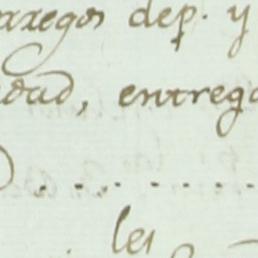 arregos dep. y
dad, entrega
les